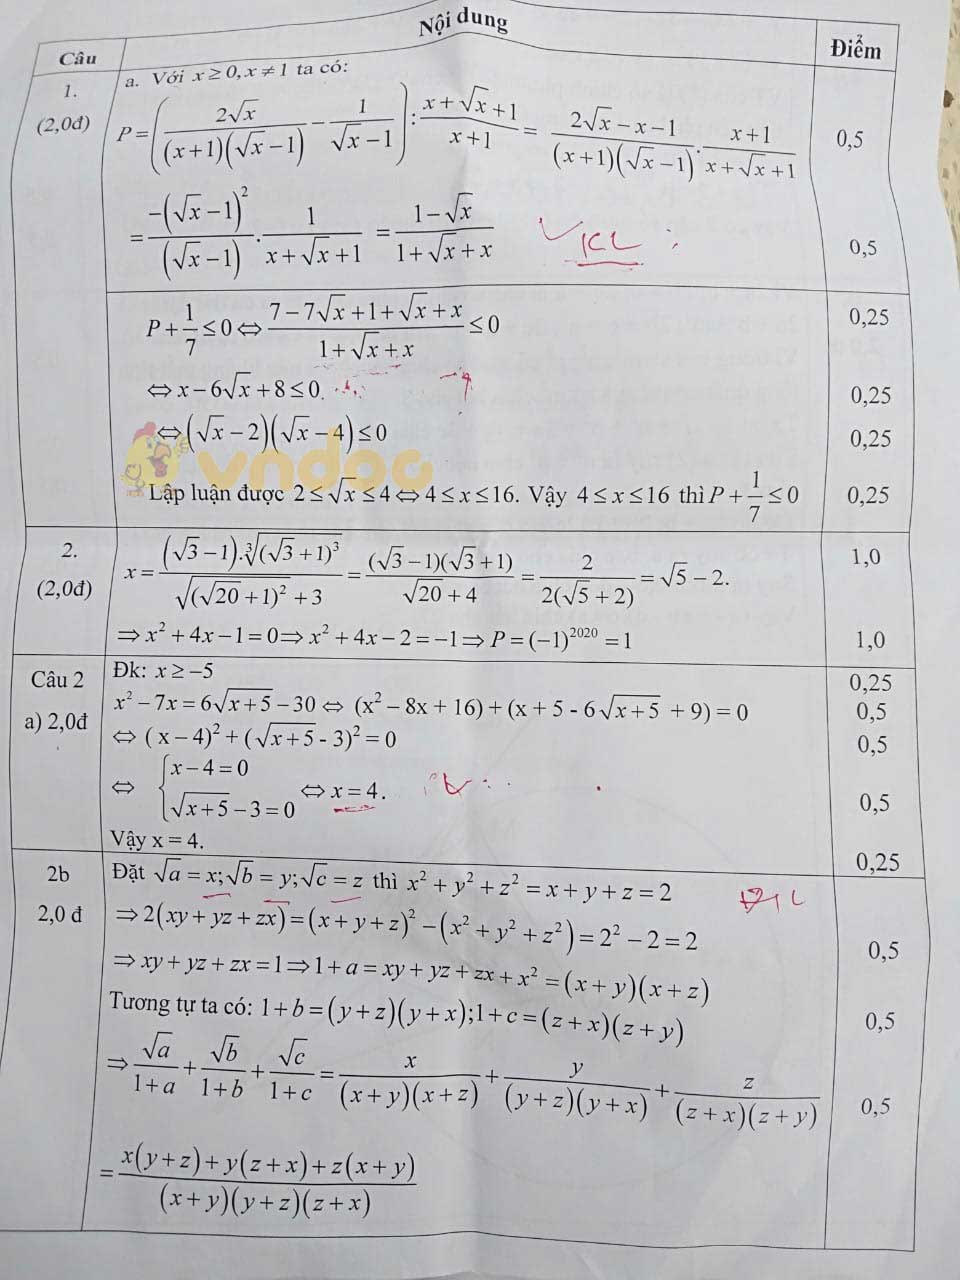 Nội dung
Câu
Điểm
1.
(2,0đ)
a. Với x ≥ 0, x ≠ 1 ta có:
P = ( 2√x / ((x+1)(√x−1)) − 1/(√x−1) ) : (x+√x+1)/(x+1) = (2√x−x−1)/((x+1)(√x−1)) . (x+1)/(x+√x+1)
0,5
= −(√x−1)²/(√x−1) . 1/(x+√x+1) = (1−√x)/(1+√x+x)
KL
0,5
P + 1/7 ≤ 0 ⇔ (7−7√x+1+√x+x)/(1+√x+x) ≤ 0
0,25
⇔ x − 6√x + 8 ≤ 0
0,25
⇔ (√x − 2)(√x − 4) ≤ 0
0,25
vndoc
Lập luận được 2 ≤ √x ≤ 4 ⇔ 4 ≤ x ≤ 16. Vậy 4 ≤ x ≤ 16 thì P + 1/7 ≤ 0
0,25
2.
(2,0đ)
x = (√3−1).∛((√3+1)³) / √((√20+1)²+3) = (√3−1)(√3+1)/(√20+4) = 2/(2(√5+2)) = √5 − 2.
1,0
⇒ x² + 4x − 1 = 0 ⇒ x² + 4x − 2 = −1 ⇒ P = (−1)²⁰²⁰ = 1
1,0
Câu 2
a) 2,0đ
Đk: x ≥ −5
0,25
x² − 7x = 6√(x+5) − 30 ⇔ (x² − 8x + 16) + (x + 5 - 6√(x+5) + 9) = 0
0,5
⇔ ( x − 4)² + (√(x+5) - 3)² = 0
0,5
⇔ { x − 4 = 0
√(x+5) − 3 = 0 ⇔ x = 4.
0,5
Vậy x = 4.
0,25
2b
2,0 đ
Đặt √a = x; √b = y; √c = z thì x² + y² + z² = x + y + z = 2
⇒ 2(xy + yz + zx) = (x + y + z)² − (x² + y² + z²) = 2² − 2 = 2
0,5
⇒ xy + yz + zx = 1 ⇒ 1 + a = xy + yz + zx + x² = (x + y)(x + z)
Tương tự ta có: 1 + b = (y + z)(y + x); 1 + c = (z + x)(z + y)
0,5
⇒ √a/(1+a) + √b/(1+b) + √c/(1+c) = x/((x+y)(x+z)) + y/((y+z)(y+x)) + z/((z+x)(z+y))
0,5
= (x(y+z)+y(z+x)+z(x+y))/((x+y)(y+z)(z+x))